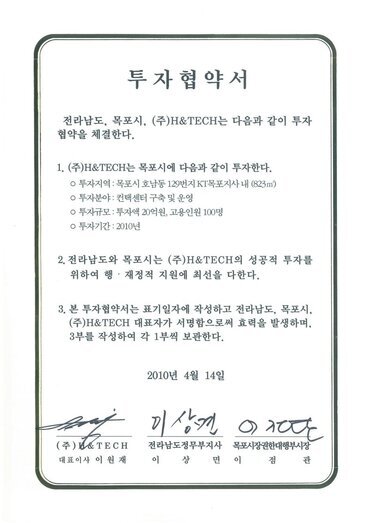 투자협약서
전라남도, 목포시, (주)H&TECH는 다음과 같이 투자
협약을 체결한다.
1. (주)H&TECH는 목포시에 다음과 같이 투자한다.
○ 투자지역 : 목포시 호남동 129번지 KT목포지사 내 (823㎡)
○ 투자분야 : 컨택센터 구축 및 운영
○ 투자규모 : 투자액 20억원, 고용인원 100명
○ 투자기간 : 2010년
2. 전라남도와 목포시는 (주)H&TECH의 성공적 투자를
위하여 행 · 재정적 지원에 최선을 다한다.
3. 본 투자협약서는 표기일자에 작성하고 전라남도, 목포시,
(주)H&TECH 대표자가 서명함으로써 효력을 발생하며,
3부를 작성하여 각 1부씩 보관한다.
2010년 4월 14일
이상면
(주)H&TECH 전라남도정무부지사 목포시장권한대행부시장
대표이사 이원재 이 상 면 이 점 관